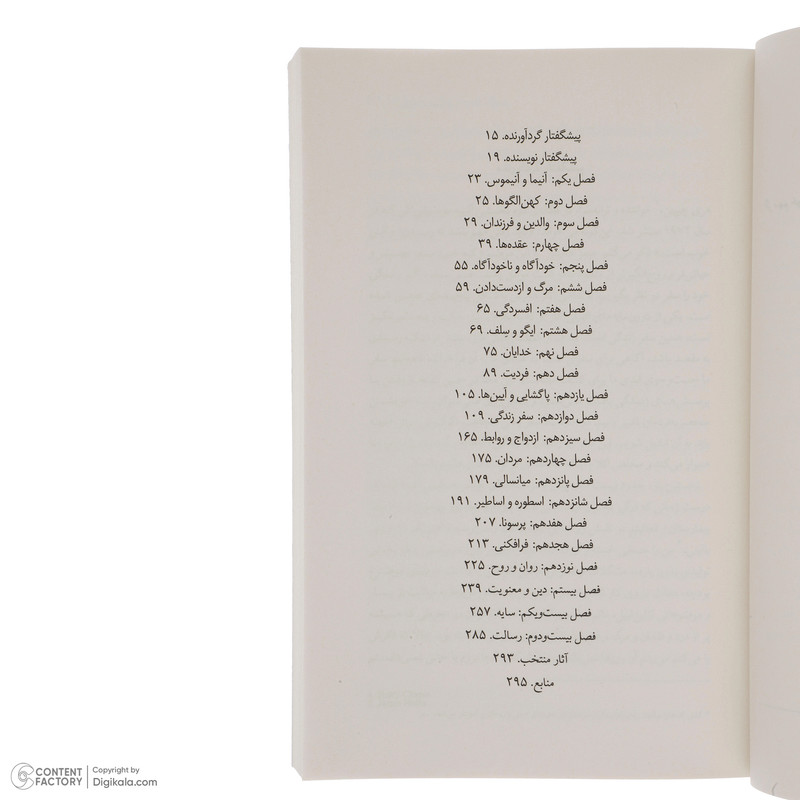 پیشگفتار گردآورنده. ۱۵
پیشگفتار نویسنده. ۱۹
فصل یکم: آنیما و آنیموس. ۲۳
فصل دوم: کهن‌الگوها. ۲۵
فصل سوم: والدین و فرزندان. ۲۹
فصل چهارم: عقده‌ها. ۳۹
فصل پنجم: خودآگاه و ناخودآگاه. ۵۵
فصل ششم: مرگ و ازدست‌دادن. ۵۹
فصل هفتم: افسردگی. ۶۵
فصل هشتم: ایگو و سِلف. ۶۹
فصل نهم: خدایان. ۷۵
فصل دهم: فردیت. ۸۹
فصل یازدهم: پاگشایی و آیین‌ها. ۱۰۵
فصل دوازدهم: سفر زندگی. ۱۰۹
فصل سیزدهم: ازدواج و روابط. ۱۶۵
فصل چهاردهم: مردان. ۱۷۵
فصل پانزدهم: میانسالی. ۱۷۹
فصل شانزدهم: اسطوره و اساطیر. ۱۹۱
فصل هفدهم: پرسونا. ۲۰۷
فصل هجدهم: فرافکنی. ۲۱۳
فصل نوزدهم: روان و روح. ۲۲۵
فصل بیستم: دین و معنویت. ۲۳۹
فصل بیست‌ویکم: سایه. ۲۵۷
فصل بیست‌ودوم: رسالت. ۲۸۵
آثار منتخب. ۲۹۳
منابع. ۲۹۵
CONTENT FACTORY
Copyright by
Digikala.com